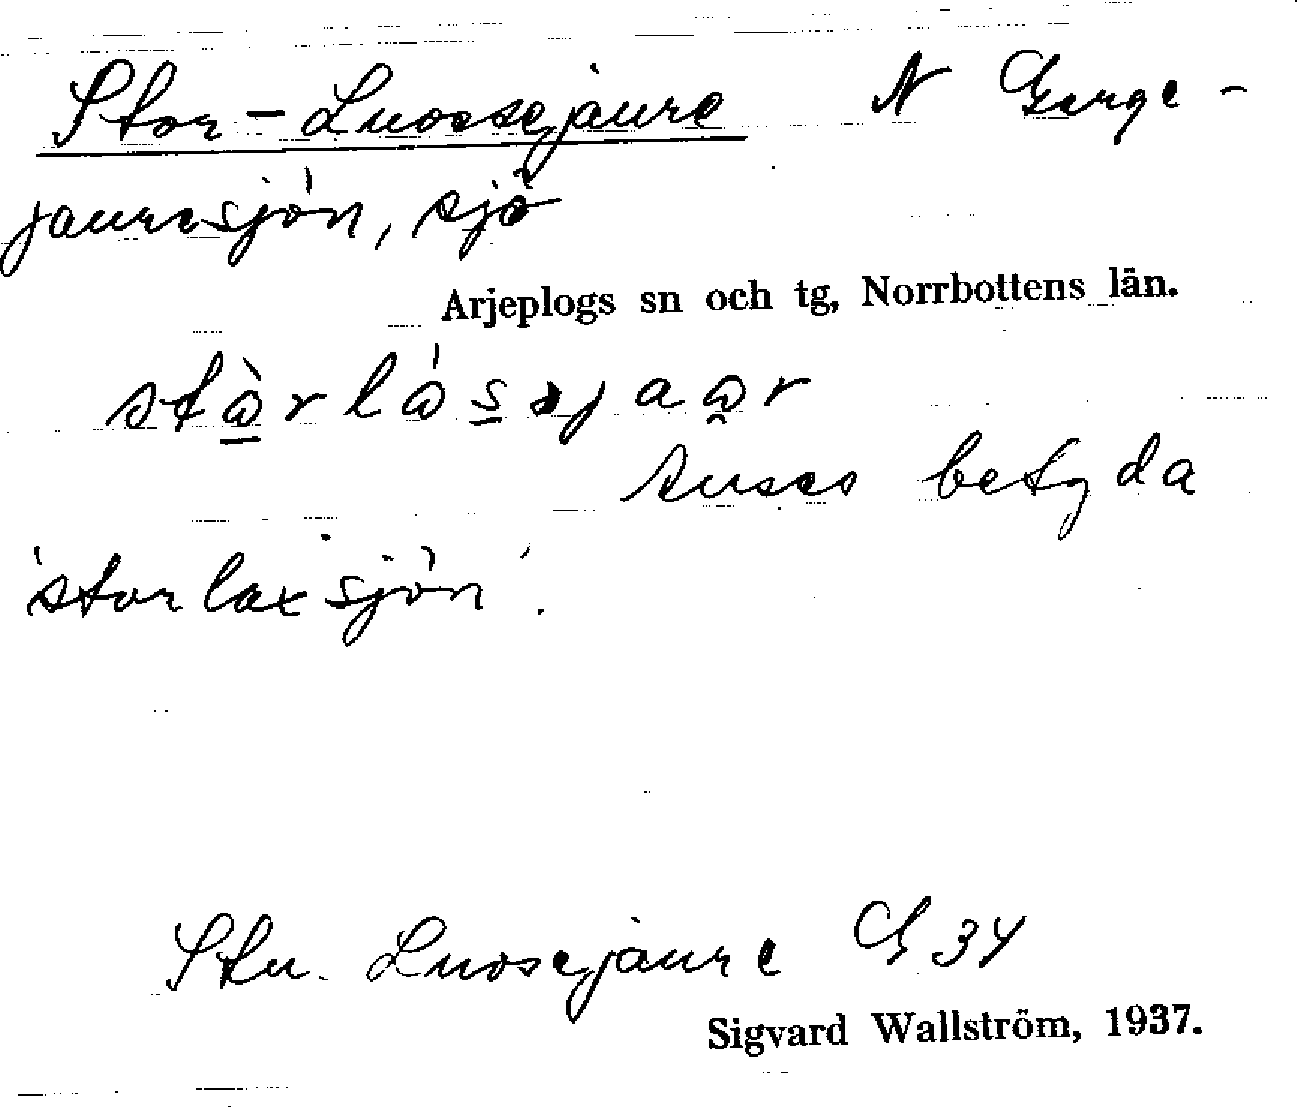 Stor-Luossejaure N Gerge-
jauresjön, sjö
Arjeplogs sn och tg, Norrbottens län.
anses betyda
'storlaxsjön'.
Luosejaure G 34
Sigvard Wallström, 1937.